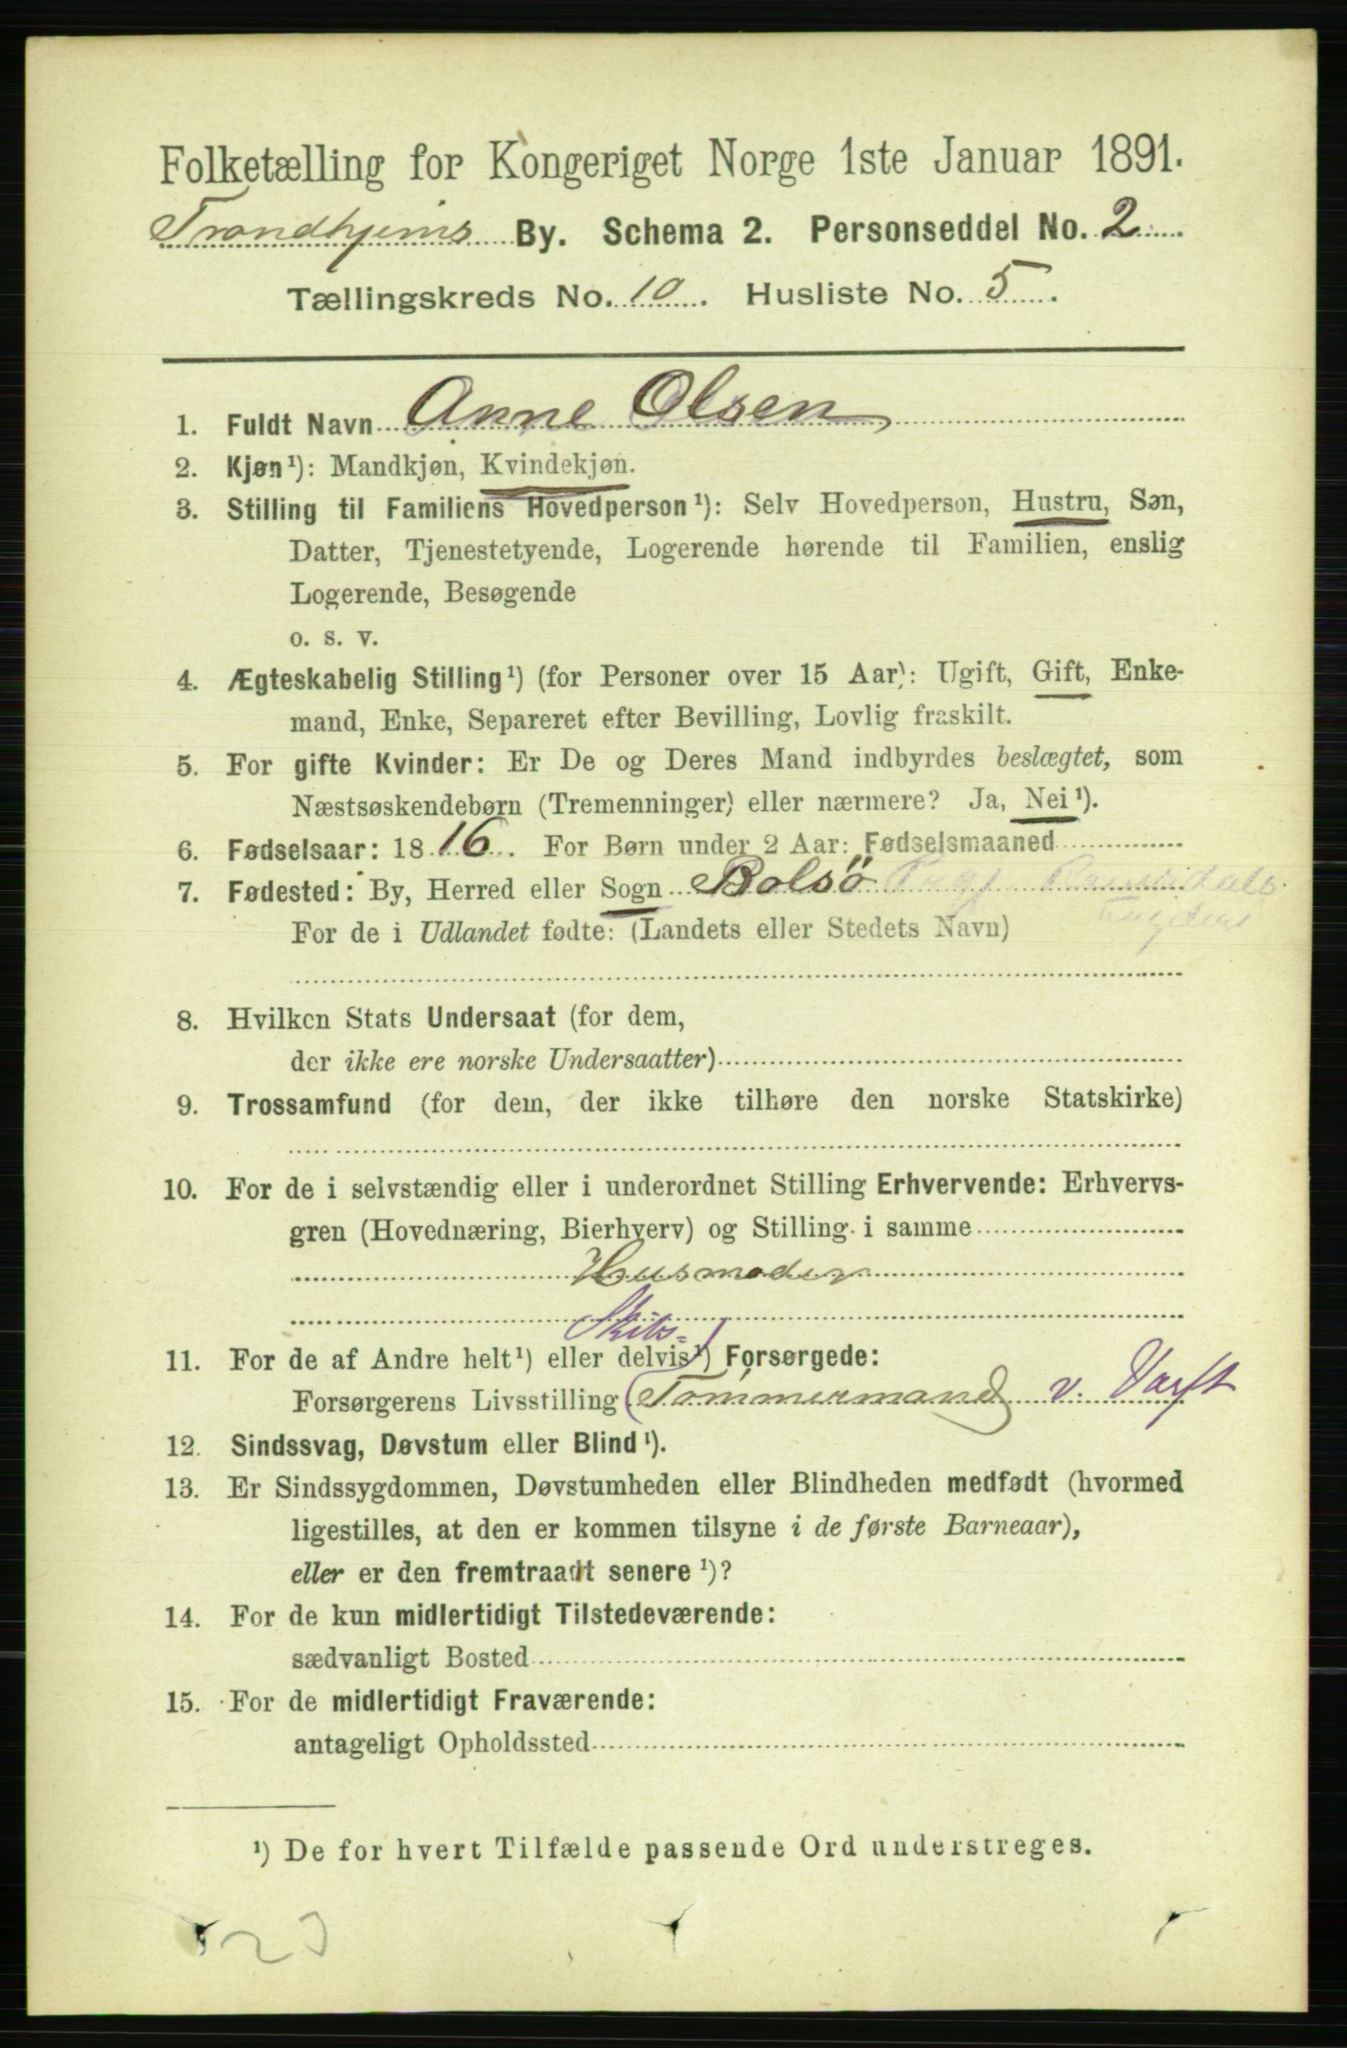 Folketælling for Kongeriget Norge 1ste Januar 1891.
Trondhjems By. Schema 2. Personseddel No. 2
Tællingskreds No. 10. Husliste No. 5.
1. Fuldt Navn Anne Olsen
2. Kjøn¹): Mandkjøn, Kvindekjøn.
3. Stilling til Familiens Hovedperson¹): Selv Hovedperson, Hustru, Søn,
Datter, Tjenestetyende, Logerende hørende til Familien, enslig
Logerende, Besøgende
o. s. v.
4. Ægteskabelig Stilling¹) (for Personer over 15 Aar): Ugift, Gift, Enke-
mand, Enke, Separeret efter Bevilling, Lovlig fraskilt.
5. For gifte Kvinder: Er De og Deres Mand indbyrdes beslægtet, som
Næstsøskendebørn (Tremenninger) eller nærmere? Ja, Nei¹).
6. Fødselsaar: 1816. For Børn under 2 Aar: Fødselsmaaned
7. Fødested: By, Herred eller Sogn Bolsö Romsdals
For de i Udlandet fødte: (Landets eller Stedets Navn)
8. Hvilken Stats Undersaat (for dem,
der ikke ere norske Undersaatter)
9. Trossamfund (for dem, der ikke tilhøre den norske Statskirke)
10. For de i selvstændig eller i underordnet Stilling Erhvervende: Erhvervs-
gren (Hovednæring, Bierhverv) og Stilling i samme
Husmoder
Skibs-
11. For de af Andre helt¹) eller delvis¹) Forsørgede:
Forsørgerens Livsstilling (Tømmermand v. Værft
12. Sindssvag, Døvstum eller Blind¹).
13. Er Sindssygdommen, Døvstumheden eller Blindheden medfødt (hvormed
ligestilles, at den er kommen tilsyne i de første Barneaar),
eller er den fremtraadt senere¹)?
14. For de kun midlertidigt Tilstedeværende:
sædvanligt Bosted
15. For de midlertidigt Fraværende:
antageligt Opholdssted
¹) De for hvert Tilfælde passende Ord understreges.